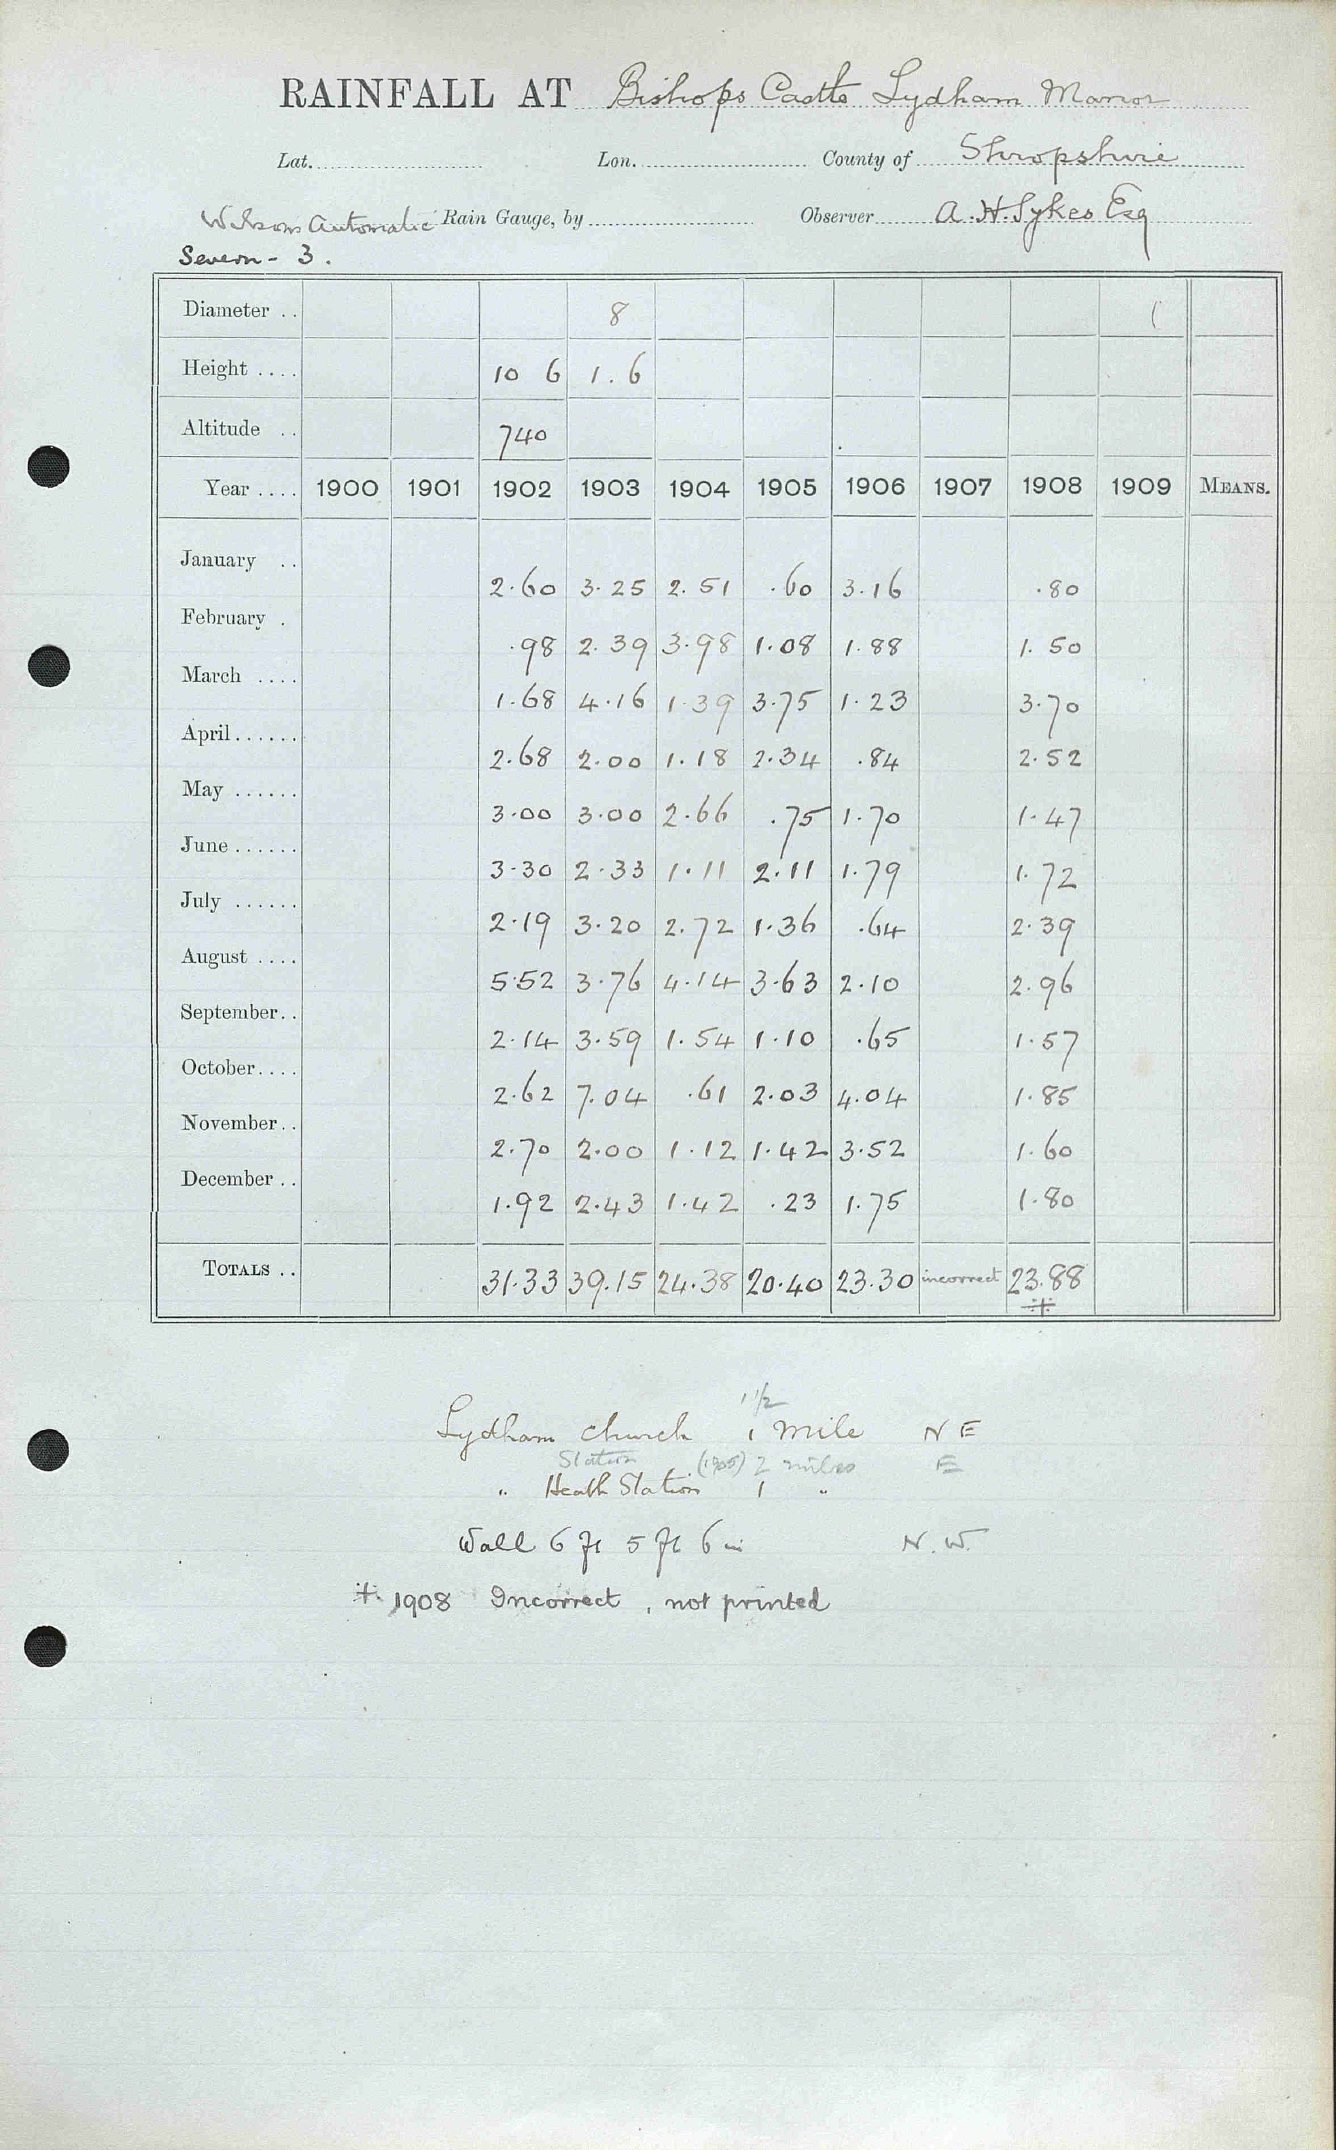 RAINFALL AT Bishops Castle Lydham Manor
Lat. Lon. County of Shropshire
Wilsons Automatic Rain Gauge, by Observer A. H. Sykes Esq
Severn - 3.
Diameter .. 8
Height .... 10 6 1.6
Altitude .. 740
Year .... 1900 1901 1902 1903 1904 1905 1906 1907 1908 1909 MEANS.
January .. 2.60 3.25 2.51 .60 3.16 .80
February . .98 2.39 3.98 1.08 1.88 1.50
March .... 1.68 4.16 1.39 3.75 1.23 3.70
April...... 2.68 2.00 1.18 2.34 .84 2.52
May ...... 3.00 3.00 2.66 .75 1.70 1.47
June...... 3.30 2.33 1.11 2.11 1.79 1.72
July ...... 2.19 3.20 2.72 1.36 .64 2.39
August .... 5.52 3.76 4.14 3.63 2.10 2.96
September.. 2.14 3.59 1.54 1.10 .65 1.57
October.... 2.62 7.04 .61 2.03 4.04 1.85
November.. 2.70 2.00 1.12 1.42 3.52 1.60
December .. 1.92 2.43 1.42 .23 1.75 1.80
TOTALS .. 31.33 39.15 24.38 20.40 23.30 incorrect 23.88
1 1/2
Lydham Church 1 Mile N E
Station (1905) 2 miles E
" Heath Station 1 "
Wall 6 ft 5 ft 6 in N.W.
1908 Incorrect, not printed